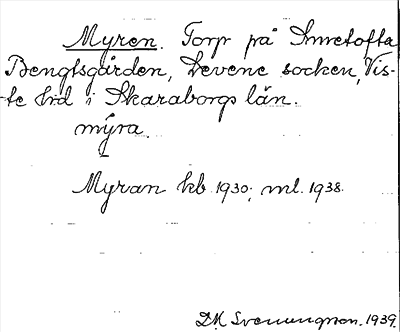 Myren. Torp på Smetofta
Bengtsgården, Levene socken, Vis-
te hd i Skaraborgs län.
mýra.
Myran kb 1930; ml. 1938.
DM Svenungson. 1939.